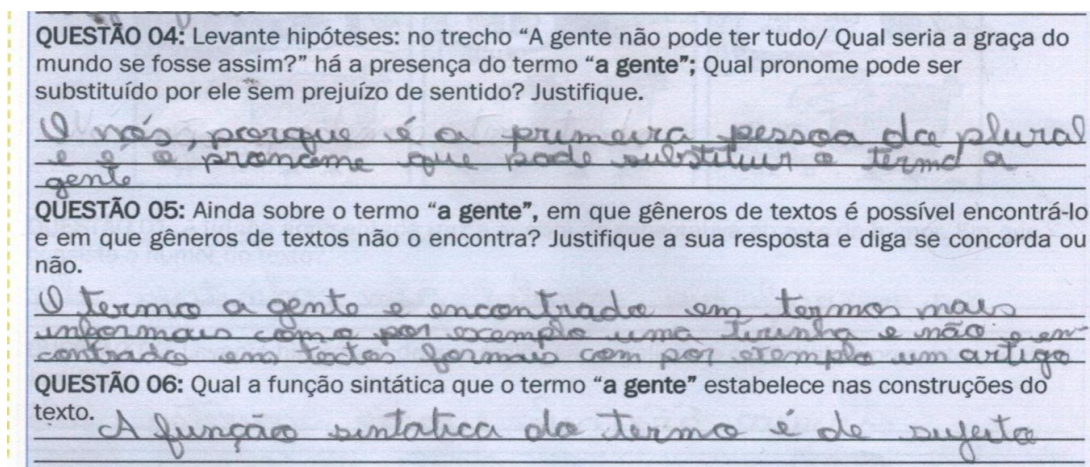 QUESTÃO 04: Levante hipóteses: no trecho “A gente não pode ter tudo/ Qual seria a graça do
mundo se fosse assim?” há a presença do termo “a gente”; Qual pronome pode ser
substituído por ele sem prejuízo de sentido? Justifique.
O nós, porque é a primeira pessoa do plural
e é o pronome que pode substituir o termo a
gente
QUESTÃO 05: Ainda sobre o termo “a gente”, em que gêneros de textos é possível encontrá-lo
e em que gêneros de textos não o encontra? Justifique a sua resposta e diga se concorda ou
não.
O termo a gente e encontrado em termos mais
informais como por exemplo uma tirinha e não e en-
contrado em textos formais com por exemplo um artigo
QUESTÃO 06: Qual a função sintática que o termo “a gente” estabelece nas construções do
texto. A função sintatica do termo é de sujeito